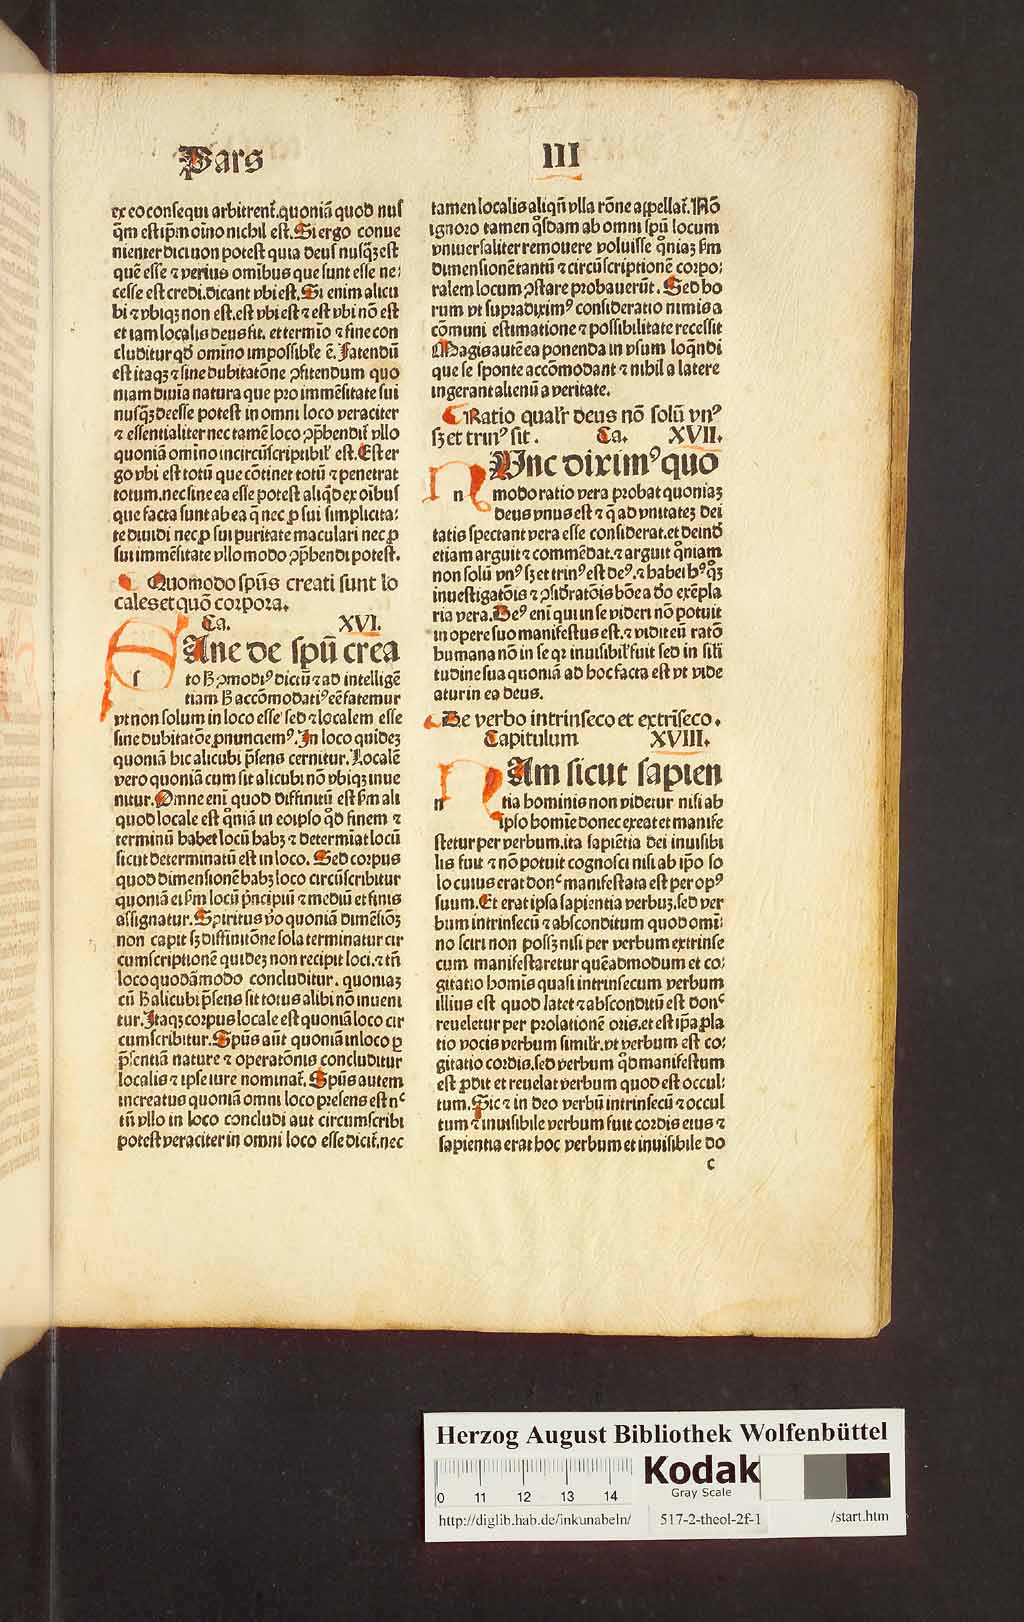 Pars
III
ex eo consequi arbitrent᷑.quoniā quod nus
q̄m est ip̄m oīno nichil est.Si ergo conue
nienter dici non potest quia deus nusq̄ꝫ est
quē esse ⁊ verius omībus que sunt esse ne⸗
cesse est credi.dicant vbi est.Si enim alicu
bi ⁊ vbiqꝫ non est.est vbi est ⁊ est vbi nō est
et iam localis deus fit. et termīo ⁊ fine con
cluditur qd̄ omino impossibĺe ē. Fatendū
est itaqꝫ ⁊ sine dubitatōne ꝓfitendum quo
niam diuīa natura que pro immēsitate sui
nusq̄ꝫ deesse potest in omni loco veraciter
⁊ essentialiter nec tamē loco ꝯp̄hendit᷑ vllo
quoniā omino incircūscriptibil᷑ est.Est er
go vbi est totū que cōtinet totū ⁊ penetrat
totum.nec sine ea esse potest aliq̄d ex oībus
que facta sunt ab ea q̄ nec ꝓ sui simplicita⸗
te diuidi nec ꝓ sui puritate maculari nec ꝓ
sui immēsitate vllo modo ꝯp̄hendi potest.
Quomodo spūs creati sunt lo
cales et quō corpora.
Ca. XVI.
s
Ane de spū crea
to ꝑ ꝯmodiꝰ dictū ⁊ ad intelligē
tiam ꝑ accōmodatiꝰ eē fatemur
vt non solum in loco esse sed ⁊ localem esse
sine dubitatōe ꝓnunciemꝰ.In loco quideꝫ
quoniā hic alicubi p̄sens cernitur.Localē
vero quoniā cum sit alicubi nō vbiqꝫ inue
nitur.Omne eni quod diffinitū est ẜm ali
quod locale est q̊niā in eo ipso q̊d finem ⁊
terminū habet locū habꝫ ⁊ determīat locū
sicut determinatū est in loco. Sed corpus
quod dimensionē habꝫ loco circūscribitur
quoniā ei ẜm locū p̄ncipiū ⁊ mediū et finis
assignatur.Spiritus v̊o quoniā dimēsioꝫ
non capit sꝫ diffinitōne sola terminatur cir
cumscriptionē quideꝫ non recipit loci.⁊ tn̄
loco quodāmodo concluditur. quoniaꝫ
cū ꝑ alicubi p̄sens sit totus alibi nō inueni
tur.Itaqꝫ corpus locale est quoniā loco cir
cumscribitur.Spūs aūt quoniā in loco ꝑ
p̄sentiā nature ⁊ operatōnis concluditur
localis ⁊ ipse iure nominat᷑. Spūs autem
increatus quoniā omni loco presens est nᶜ
tn̄ vllo in loco concludi aut circumscribi
potest veraciter in omni loco esse dicit᷑.nec
tamen localis aliq̄n vlla rōne appellat᷑.Nō
ignoro tamen q̊sdam ab omni spū locum
vniuersaliter remouere voluisse q̊niaꝫ ẜm
dimensionē tantū ⁊ circūscriptionē corpo⸗
ralem locum ꝯstare probauerūt. Sed ho
rum vt supradiximꝰ consideratio nimis a
cōmuni estimatione ⁊ possibilitate recessit
Magis autē ea ponenda in vsum loq̄ndi
que se sponte accōmodant ⁊ nihil a latere
ingerant alienū a veritate.
Ratio qual᷑r deus nō solū vnꝰ
sꝫ et trinꝰ sit. Ca. XVII.
n
Unc diximꝰ quo
modo ratio vera probat quoniaꝫ
deus vnus est ⁊ q̄ ad vnitateꝫ dei
tatis spectant vera esse considerat.et deind̄
etiam arguit ⁊ commēdat.⁊ arguit q̊niam
non solū vnꝰ sꝫ et trinꝰ est deꝰ.⁊ habet hꝰ q̊ꝫ
inuestigatōis ⁊ ꝯsid̄ratōis bōe a do exēpla
ria vera.Deꝰ eni qui in se videri nō potuit
in opere suo manifestus est.⁊ vidit eū ratō
humana nō in se qꝛ inuisibil᷑ fuit sed in sili
tudine sua quoniā ad hoc facta est vt vide
atur in ea deus.
De verbo intrinseco et extrīseco.
Capitulum XVIII.
n
Am sicut sapien
tia hominis non videtur nisi ab
ipso homīe donec exeat et manife
stetur per verbum.ita sapiētia dei inuisibi
lis fuit ⁊ nō potuit cognosci nisi ab ip̄o so
lo cuius erat donᶜ manifestata est per opꝰ
suum.Et erat ipsa sapientia verbuꝫ.sed ver
bum intrinsecū ⁊ absconditum quod omī⸗
no sciri non possꝫ nisi per verbum extrinse
cum manifestaretur quēadmodum et co⸗
gitatio homīs quasi intrinsecum verbum
illius est quod latet ⁊ absconditū est donᶜ
reueletur per prolationē oris.et est ip̄a ꝓla
tio vocis verbum simil᷑r.vt verbum est co⸗
gitatio cordis.sed verbum q̊d manifestum
est ꝓdit et reuelat verbum quod est occul⸗
tum.Sic ⁊ in deo verbū intrinsecū ⁊ occul
tum ⁊ inuisibile verbum fuit cordis eius ⁊
sapientia erat hoc verbum et inuisibile do
c
Herzog August Bibliothek Wolfenbüttel
0 11 12 13 14
Kodak
Gray Scale
http://diglib.hab.de/inkunabeln/ 517-2-theol-2f-1 /start.htm